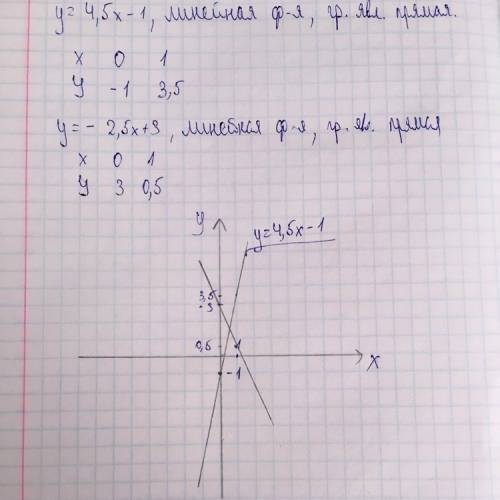 y = 4,5x - 1, линейная ф-я, гр. явл. прямая.
x 0 1
y -1 3,5
y = - 2,5x + 3, линейная ф-я, гр. явл. прямая
x 0 1
y 3 0,5
y
y = 4,5x - 1
3,5
3
0,5
1
x
-1